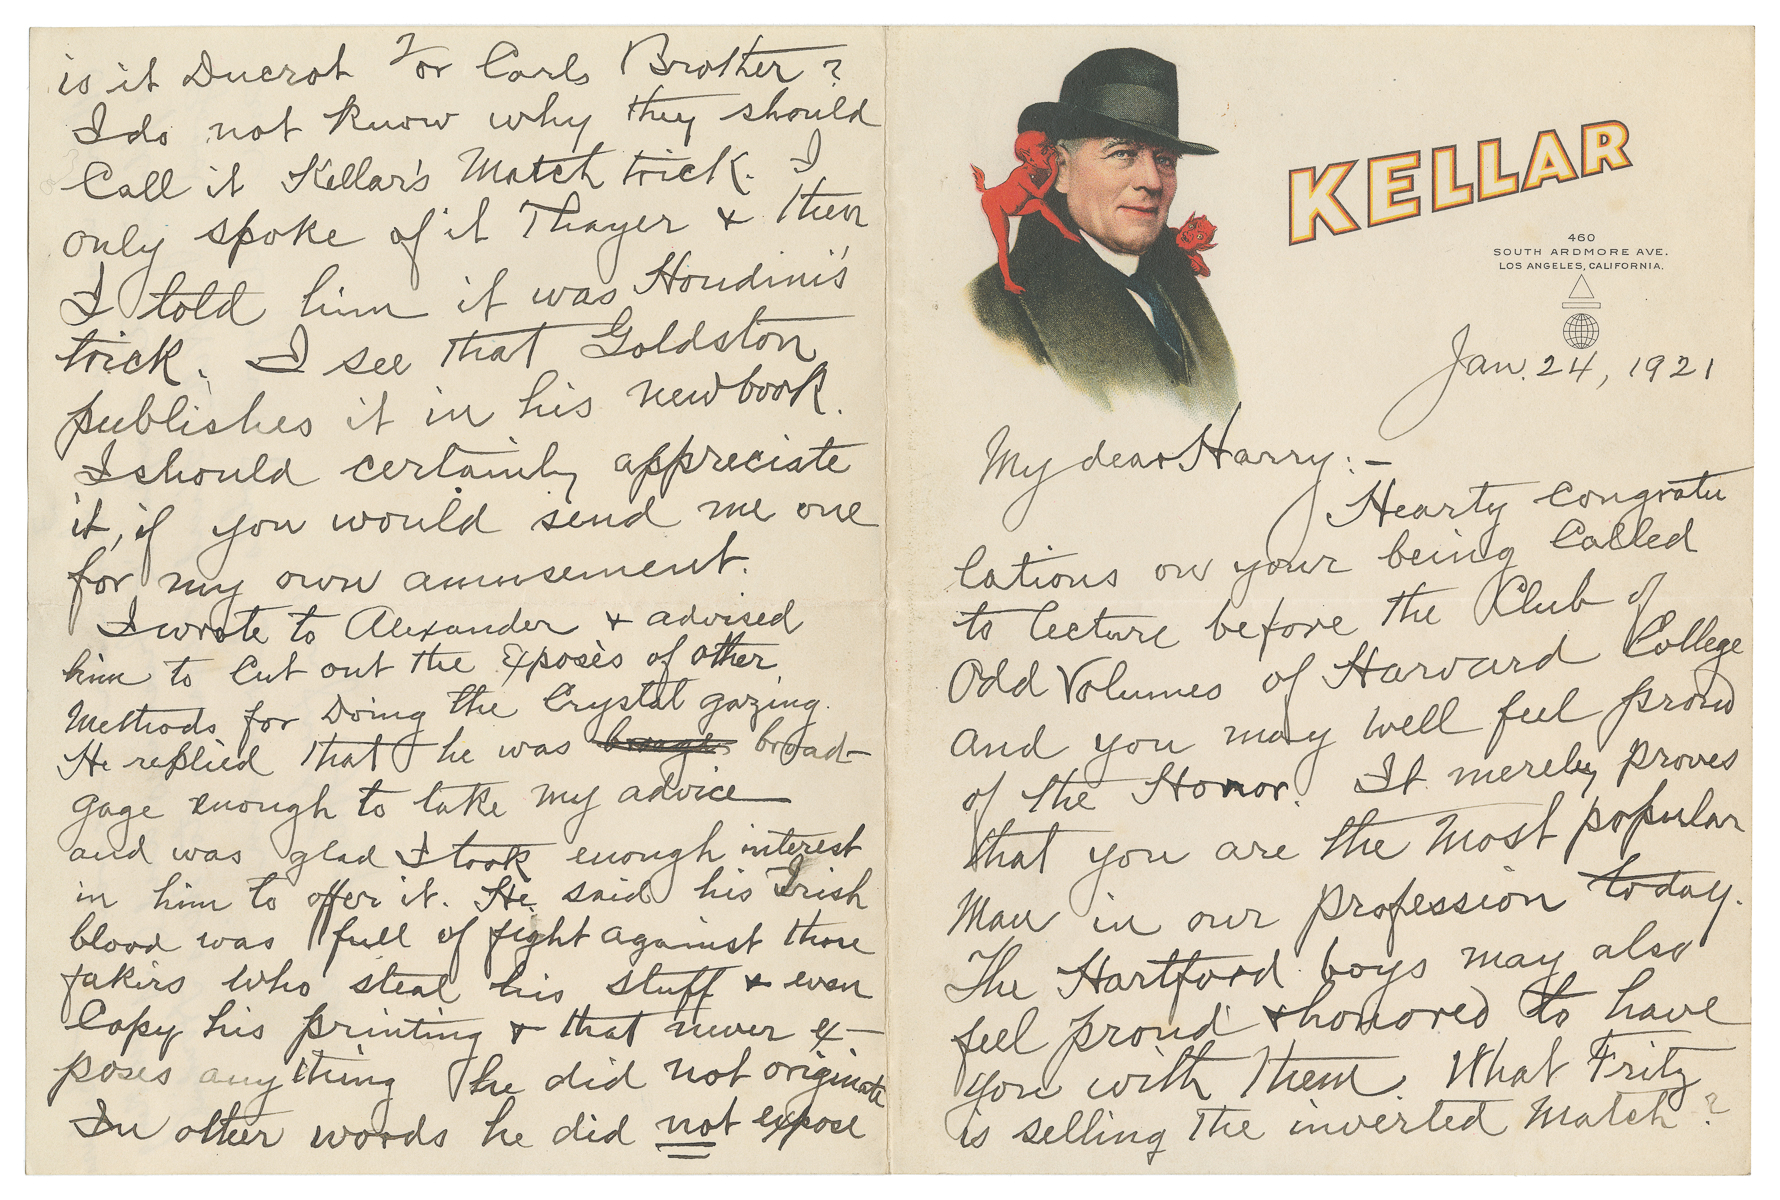 KELLAR
460
SOUTH ARDMORE AVE.
LOS ANGELES, CALIFORNIA.
Jan. 24, 1921
My dear Harry:-
Hearty congratu
lations on your being Called
to lecture before the Club of
Odd Volumes of Harvard College
and you may well feel proud
of the Honor. It merely proves
that you are the Most popular
Man in our profession today.
The Hartford boys may also
feel proud & honored to have
you with them. What Fritz
is selling The inverted Match?
is it Ducrot? or Carls Brother?
I do not know why they should
Call it Kellar's Match trick. I
only spoke of it Thayer & then
I told him it was Houdini's
trick. I see that Goldston
publishes it in his new book.
I should certainly appreciate
it, if you would send me one
for my own amusement.
I wrote to Alexander & advised
him to Cut out the Exposès of other
Methods for Doing the Crystal gazing.
He replied that he was broad-
gage enough to take my advice
and was glad I took enough interest
in him to offer it. He said his Irish
blood was full of fight against those
fakirs who steal his stuff & even
Copy his printing & that never ex-
poses anything he did not originate
In other words he did not expose